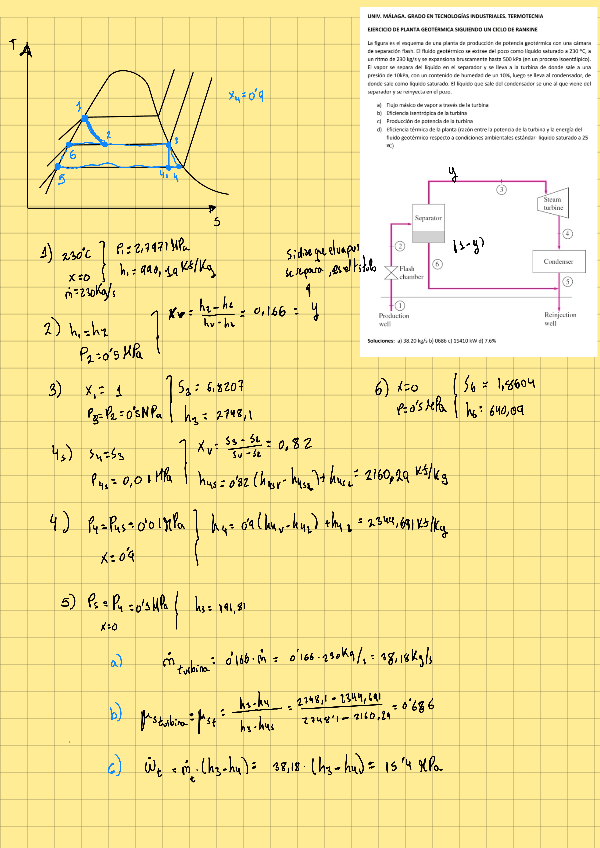 UNIV. MÁLAGA. GRADO EN TECNOLOGÍAS INDUSTRIALES. TERMOTECNIA
EJERCICIO DE PLANTA GEOTÉRMICA SIGUIENDO UN CICLO DE RANKINE
La figura es el esquema de una planta de producción de potencia geotérmica con una cámara
de separación flash. El fluido geotérmico se extrae del pozo como líquido saturado a 230 ºC, a
un ritmo de 230 kg/s y se expansiona bruscamente hasta 500 kPa (en un proceso isoentálpico).
El vapor se separa del líquido en el separador y se lleva a la turbina de donde sale a una
presión de 10kPa, con un contenido de humedad de un 10%, luego se lleva al condensador, de
donde sale como líquido saturado. El líquido que sale del condensador se une al que viene del
separador y se reinyecta en el pozo.
a) Flujo másico de vapor a través de la turbina
b) Eficiencia isentrópica de la turbina
c) Producción de potencia de la turbina
d) Eficiencia térmica de la planta (razón entre la potencia de la turbina y la energía del
fluido geotérmico respecto a condiciones ambientales estándar líquido saturado a 25
ºC)
y
3
Steam
turbine
Separator
4
2
(1-y)
6
Condenser
Flash
chamber
5
1
Production
well
Reinjection
well
Soluciones: a) 38.20 kg/s b) 0686 c) 15410 kW d) 7.6%
T
x4=0'9
1
2
3
6
5
4s 4
S
1) 230ºC
x=0
ṁ=230Kg/s
P1=2,7971 MPa
h1=990,19 KJ/Kg
si dice que el vapor
se separa, es el título
2) h1=h2
P2=0'5 MPa
xv = (h2-hl)/(hv-hl) = 0,166 = y
3) x1=1
P3=P2=0'5MPa
S3=6,8207
h3=2748,1
6) x=0
P=0'5MPa
S6=1,8604
h6=640,09
4s) s4=s3
P4s=0,01 MPa
xv = (s3-sl)/(sv-sl) = 0,82
h4s=0'82(h4sv-h4sl)+h4sl=2160,29 KJ/Kg
4) P4=P4s=0'01MPa
x=0'9
h4=0'9(h4v-h4l)+h4l=2344,691KJ/Kg
5) P5=P4=0'01MPa
x=0
h5=191,81
a) ṁturbina=0'166·ṁ=0'166·230Kg/s=38,18Kg/s
b) μsturbina=μst=(h3-h4)/(h3-h4s)=(2748,1-2344,691)/(2748'1-2160,29)=0'686
c) Ẇt=ṁt·(h3-h4)=38,18·(h3-h4)=15'4 MPa